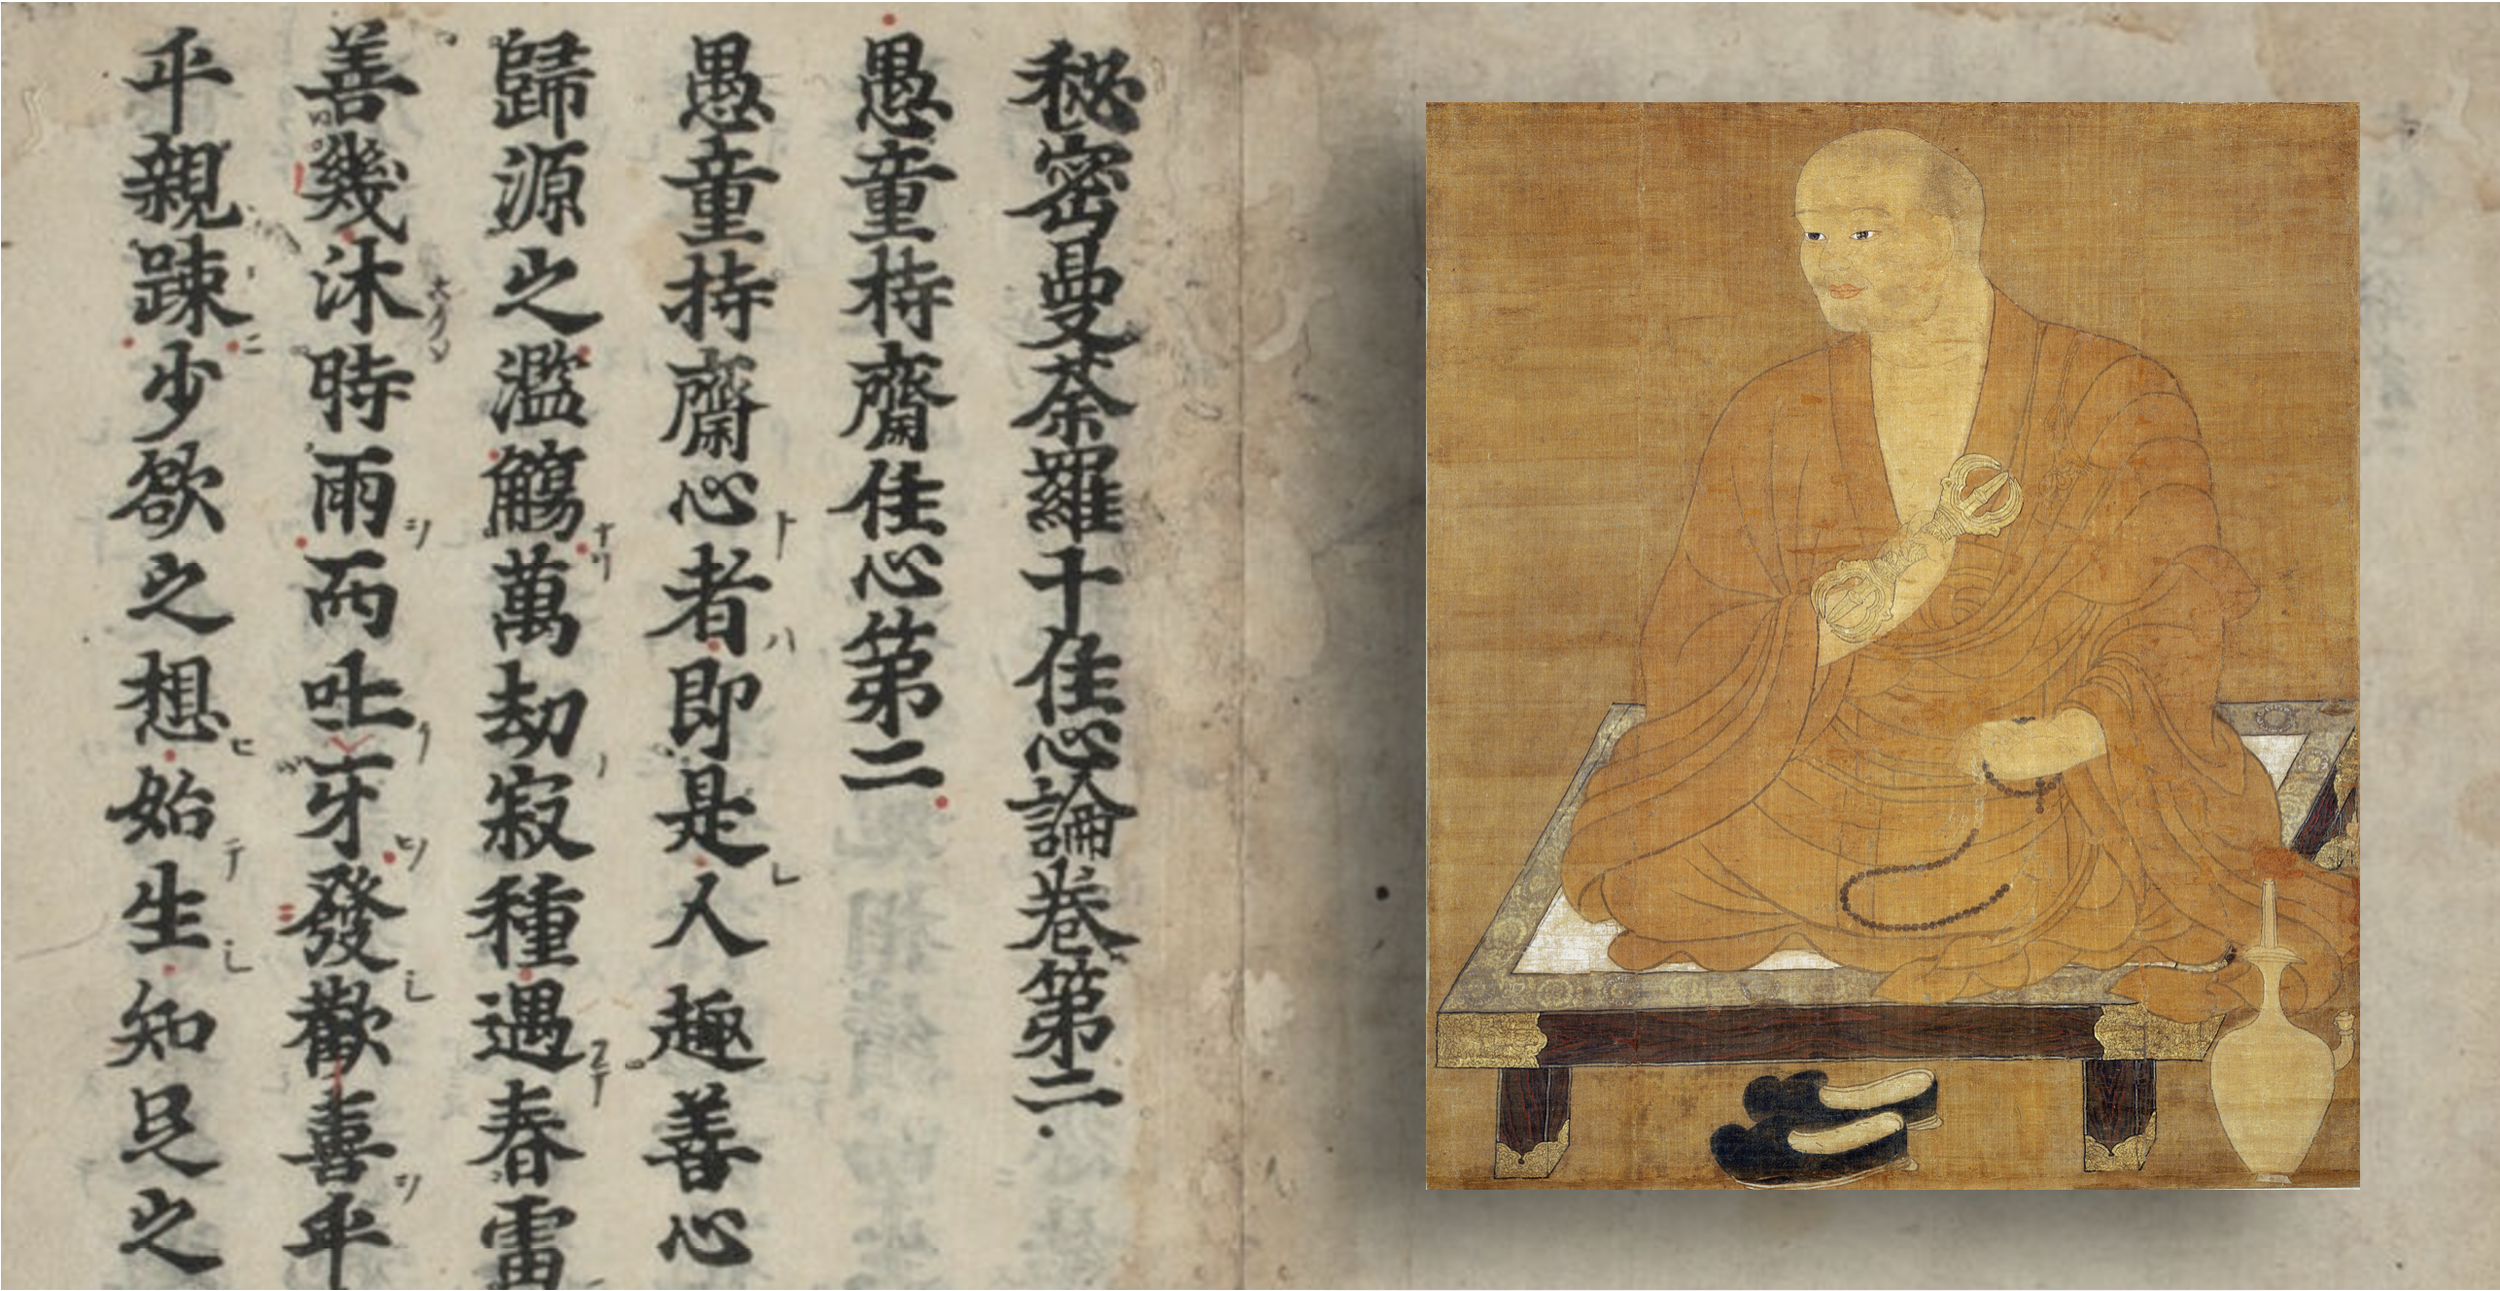 秘密曼荼羅十住心論卷第二
愚童持齋住心第二
愚童持齋心者即是人趣善心
歸源之濫觴萬劫寂種遇春雷
善幾沐時雨而吐牙發歡喜乎
乎親踈少欲之想始生知足之